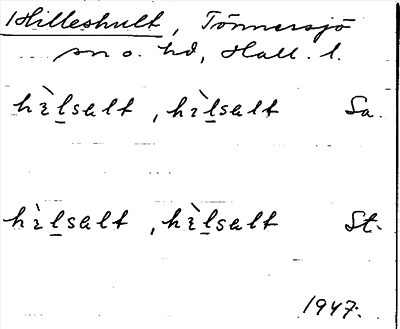 Hilleshult, Tönnersjö
sn o. hd, Hall. l.
hɛ̀l̲salt, hɛ̀l̲salt Sa.
hɛ̀l̲salt, hɛ̀l̲salt St.
1947.